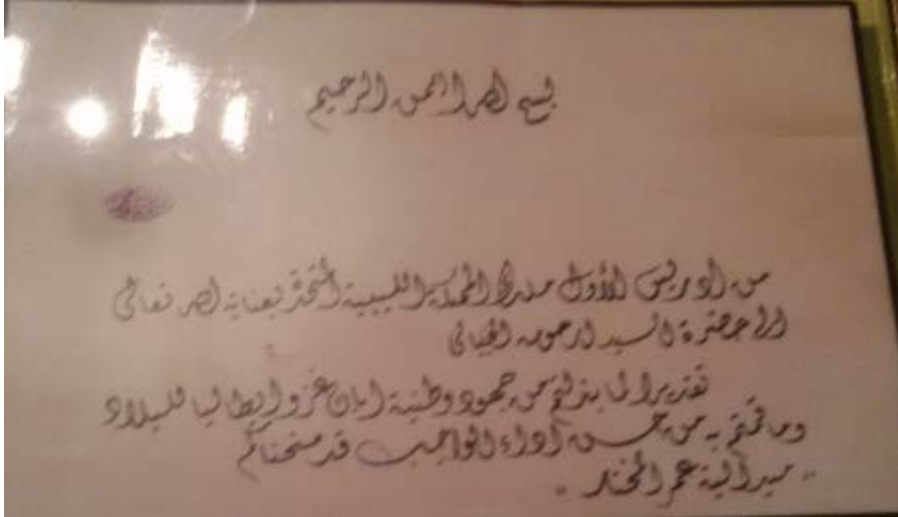 بسم الله الرحمن الرحيم
من ادريس الأول ملك المملكة الليبية المتحدة بعناية الله تعالى
الى حضرة السيد ارحومه
تقديرا لما بذلتم من جهود وطنية ابان غزو ايطاليا للبلاد
وما قمتم به من حسن أداء الواجب قد منحناكم
" ميدالية عمر المختار "